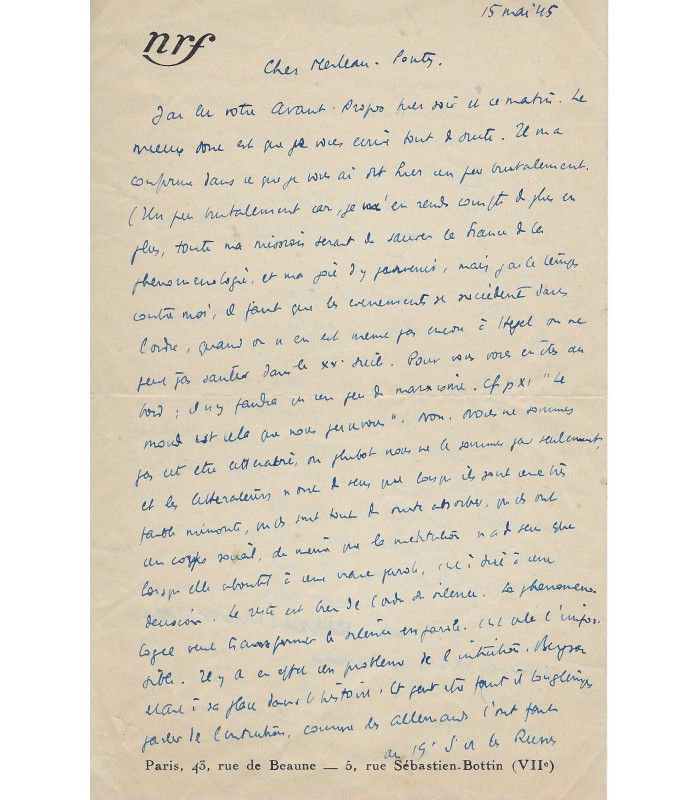 15 mai 45
nrf
Cher Merleau-Ponty.
J'ai lu votre Avant-Propos hier soir et ce matin. Le
mieux donc est que je vous écrive tout de suite. Il m'a
confirmé dans ce que je vous ai dit hier un peu brutalement.
(Un peu brutalement car, je m'en rends compte de plus en
plus, toute ma mission serait de sauver la France de la
phénoménologie, et ma joie d'y parvenir, mais j'ai le temps
contre moi, il faut que les évènements se succèdent dans
l'ordre, quand on n'en est même pas encore à Hegel on ne
peut pas sauter dans le XXe siècle. Pour vous vous en êtes au
bord ; il n'y faudra qu'un peu de marxisme. Cf p XI "Le
monde est cela que nous percevons". Non. Nous ne sommes
pas cet être, ou plutôt nous ne le sommes pas seulement,
et les n'ont de sens que lorsqu'ils sont une très
faible minorité, qu'ils sont tout de suite absorbés, qu'ils ont
un corps social, de même que la méditation n'a de sens que
lorsqu'elle aboutit à une vraie parole, c'est à dire à une
décision. Le reste est bien de l'ordre du silence. La phénoméno-
logie veut transformer le silence en parole. C'est cela l'impos-
sible. Il y a en effet un problème de l'intuition. Bergson
était à sa place dans l'histoire. Et peut être faut il longtemps
parler de l'intuition, comme les allemands l'ont fait
au 19e S et les Russes
Paris, 43, rue de Beaune — 5, rue Sébastien-Bottin (VIIe)